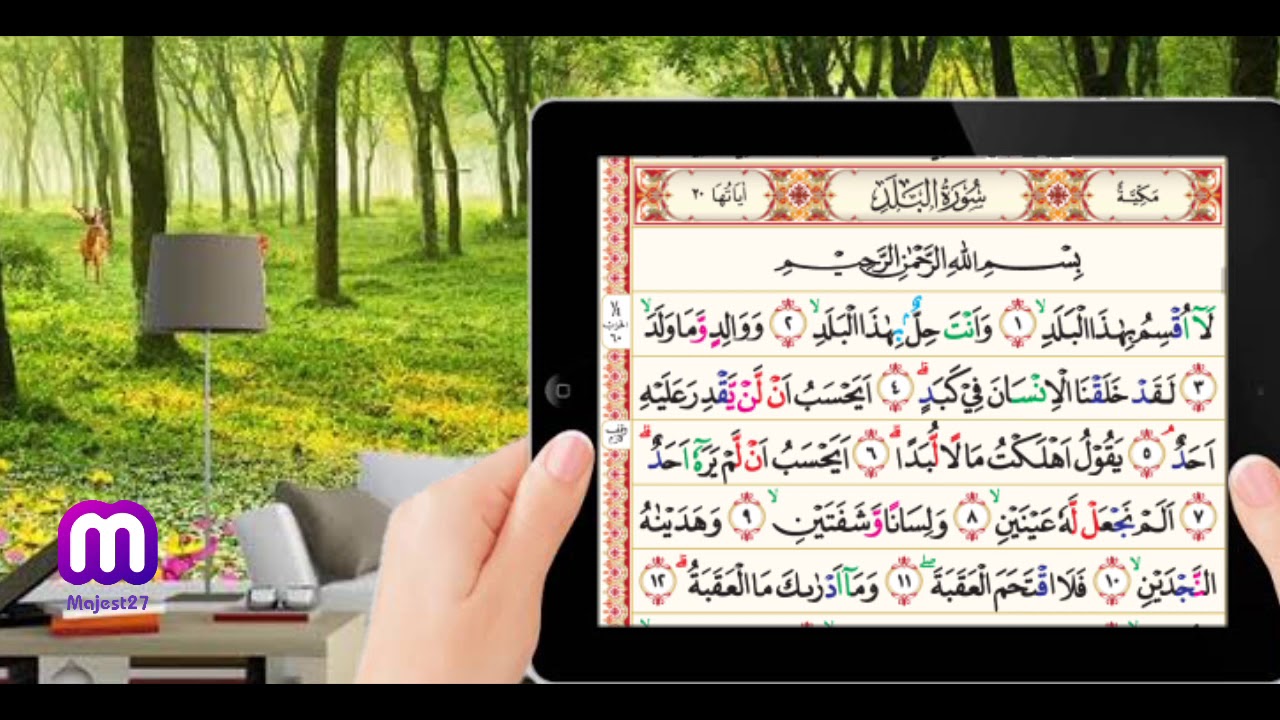 مَكِّيَّةٌ سُوْرَةُ الْبَلَدِ اٰيَاتُهَا ٢٠
بِسْمِ اللّٰهِ الرَّحْمٰنِ الرَّحِيْمِ
لَآ اُقْسِمُ بِهٰذَا الْبَلَدِۙ ١ وَاَنْتَ حِلٌّۢ بِهٰذَا الْبَلَدِۙ ٢ وَوَالِدٍ وَّمَا وَلَدَۙ
٣ لَقَدْ خَلَقْنَا الْاِنْسَانَ فِيْ كَبَدٍۗ ٤ اَيَحْسَبُ اَنْ لَّنْ يَّقْدِرَ عَلَيْهِ
اَحَدٌۘ ٥ يَقُوْلُ اَهْلَكْتُ مَالًا لُّبَدًاۗ ٦ اَيَحْسَبُ اَنْ لَّمْ يَرَهٗٓ اَحَدٌۗ
٧ اَلَمْ نَجْعَلْ لَّهٗ عَيْنَيْنِۙ ٨ وَلِسَانًا وَّشَفَتَيْنِۙ ٩ وَهَدَيْنٰهُ
النَّجْدَيْنِۙ ١٠ فَلَا اقْتَحَمَ الْعَقَبَةَۖ ١١ وَمَآ اَدْرٰىكَ مَا الْعَقَبَةُۗ ١٢
الحزب
٦٠
وقف
لازم
m
Majest27